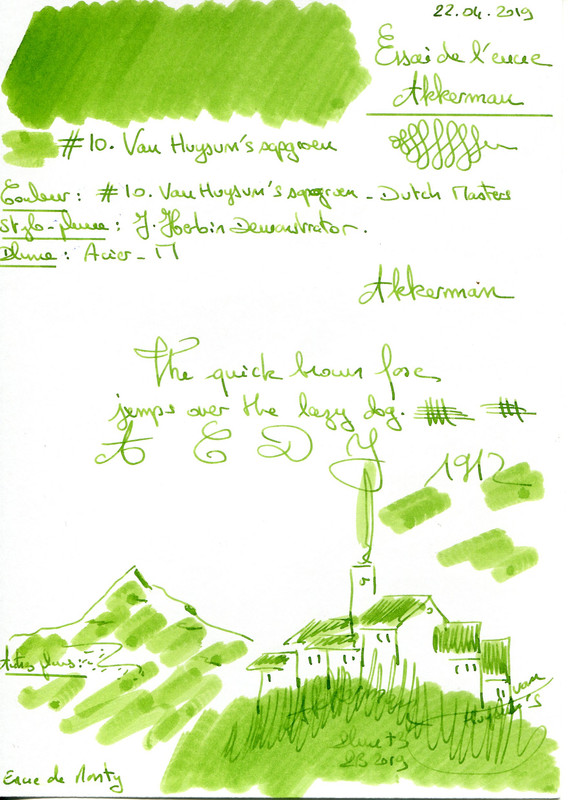 22.04.2019
Essai de l'encre
Akkerman
#10. Van Huysum's sapgroen
Couleur : #10. Van Huysum's sapgroen - Dutch Masters
Stylo-plume : J. Herbin Demonstrator.
Plume : Acier - M
Akkerman
The quick brown fox
jumps over the lazy dog.
A E D J
1912
Autres plumes :
van
Huysum's
Plume
2019
Encre de Monty